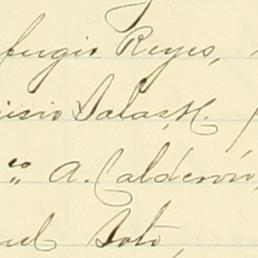 efugio Reyes,
isio Salas, H.
co A. Calderón,
uel Soto,